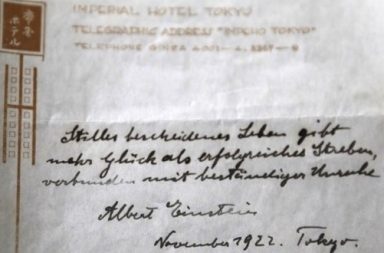 帝国ホテル
IMPERIAL HOTEL TOKYO
TELEGRAPHIC ADDRESS "IMPEHO TOKYO"
TELEPHONE GINZA
Stilles bescheidenes Leben gibt
mehr Glück als erfolgreiches Streben,
verbunden mit beständiger Unruhe
Albert Einstein
November 1922. Tokyo.